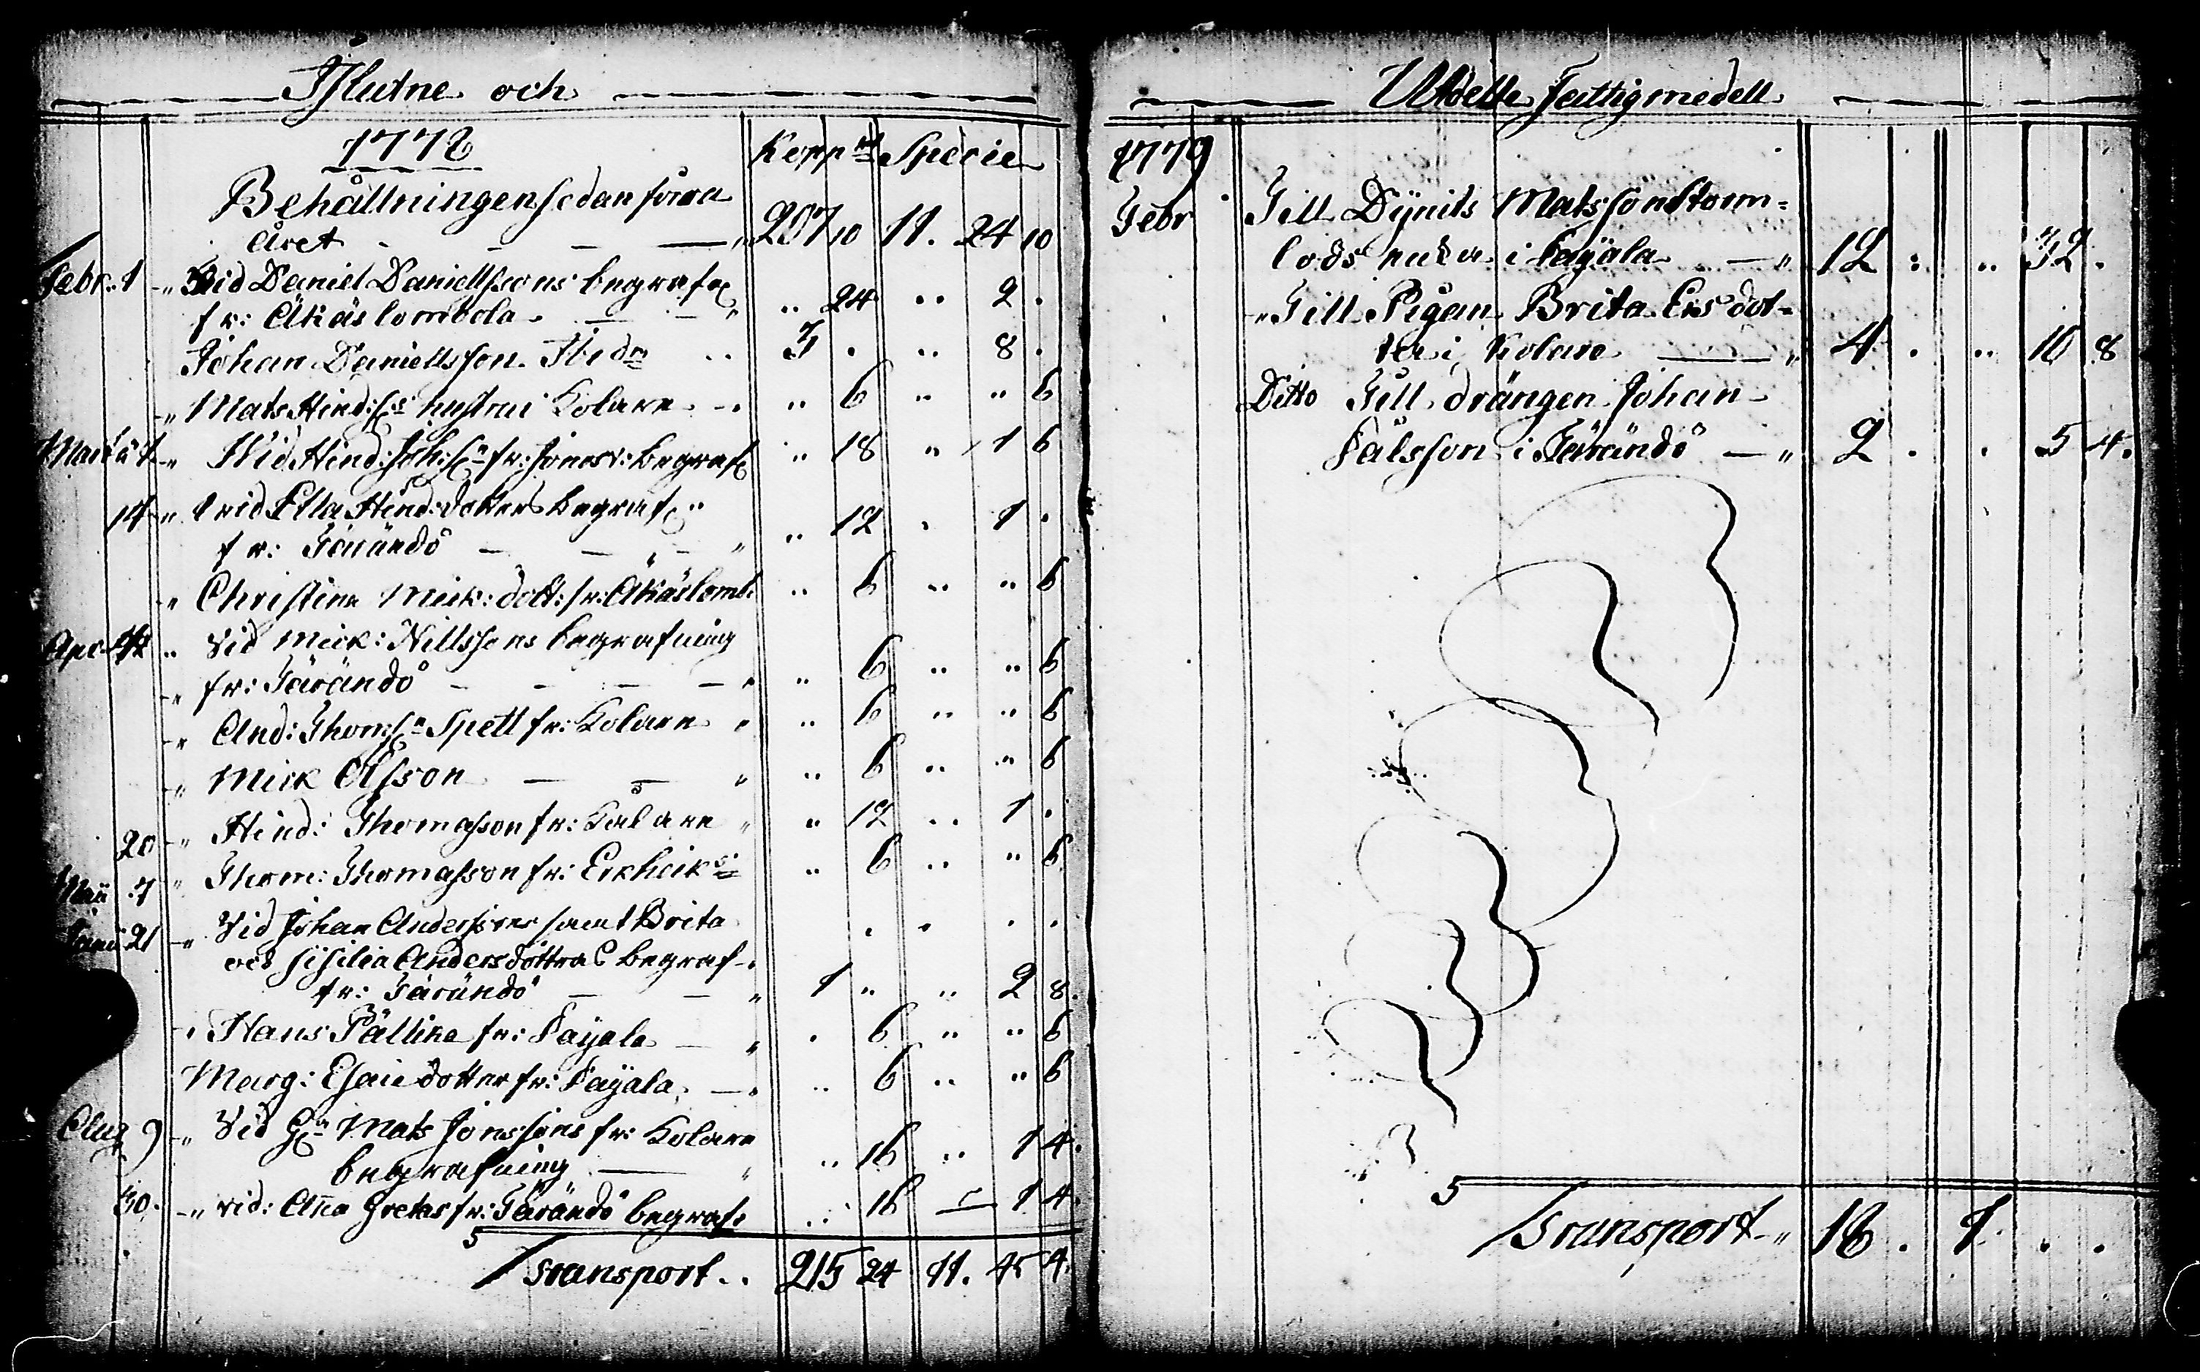 Influtne och
1778 Kopp:mt Specie
Behållningen sedan förra
Året " 207 10 11. 24 10
Febr. 1 " Wid Daniel Daniellssons begrafn
fr: Äkäslombola " .. 24 .. 2 .
Johan Daniellsson Ibid:m .. 3 . .. 8 .
" Mats Hind:ss hustru i Kolare .. 6 .. " 6
Martii 1 " Wid Hind: Joh:sn fr: begraf .. 18 " 1 6
14 " wid Ella Hind:dotters begraf
fr: Tärändö " .. 12 . 1 .
" Christina Mick: dott: fr: Äkäslomb: .. 6 .. " 6
Apr. " Vid Mick: Nillssons begrafning
" fr: Tärändö " .. 6 .. " 6
" And: Thom:sn Spett fr: Kolare " .. 6 .. " 6
" Mick Olsson " .. 6 .. " 6
20 " Hind: Thomasson fr: Kolare " " 12 .. 1 .
Maii 7 " Thom: Thomasson fr: .. 6 .. " 6
Junii 21 " Vid Johan Anderssons samt Brita
och Sisilia Andersdöttrars begraf
fr: Tärändö " 1 " .. 2 8.
Hans Pällikä fr: Payala " . 6 " " 6
Marg: Esaiedotter fr: Payala .. 6 .. " 6
Aug 9 " Vid Mats Jonssons fr: Kolare
begrafning " .. 16 .. 1 4.
30. " vid: Aña Gretas fr: Tärändö begraf: .. 16 1 4.
Transport .. 215 24 11. 45 4.
Utdelte Fattigmedell
1779
Febr Till Dynits Matsson Storm-
lods i Payala " 12 : .. 32 .
" Till Pigan Brita Ersdot-
ter i Kolare " 4 . .. 10 8
Ditto Till drängen Johan
Pålsson i Tärändö " 2 . . 5 4.
Transport " 18 . 1 . .